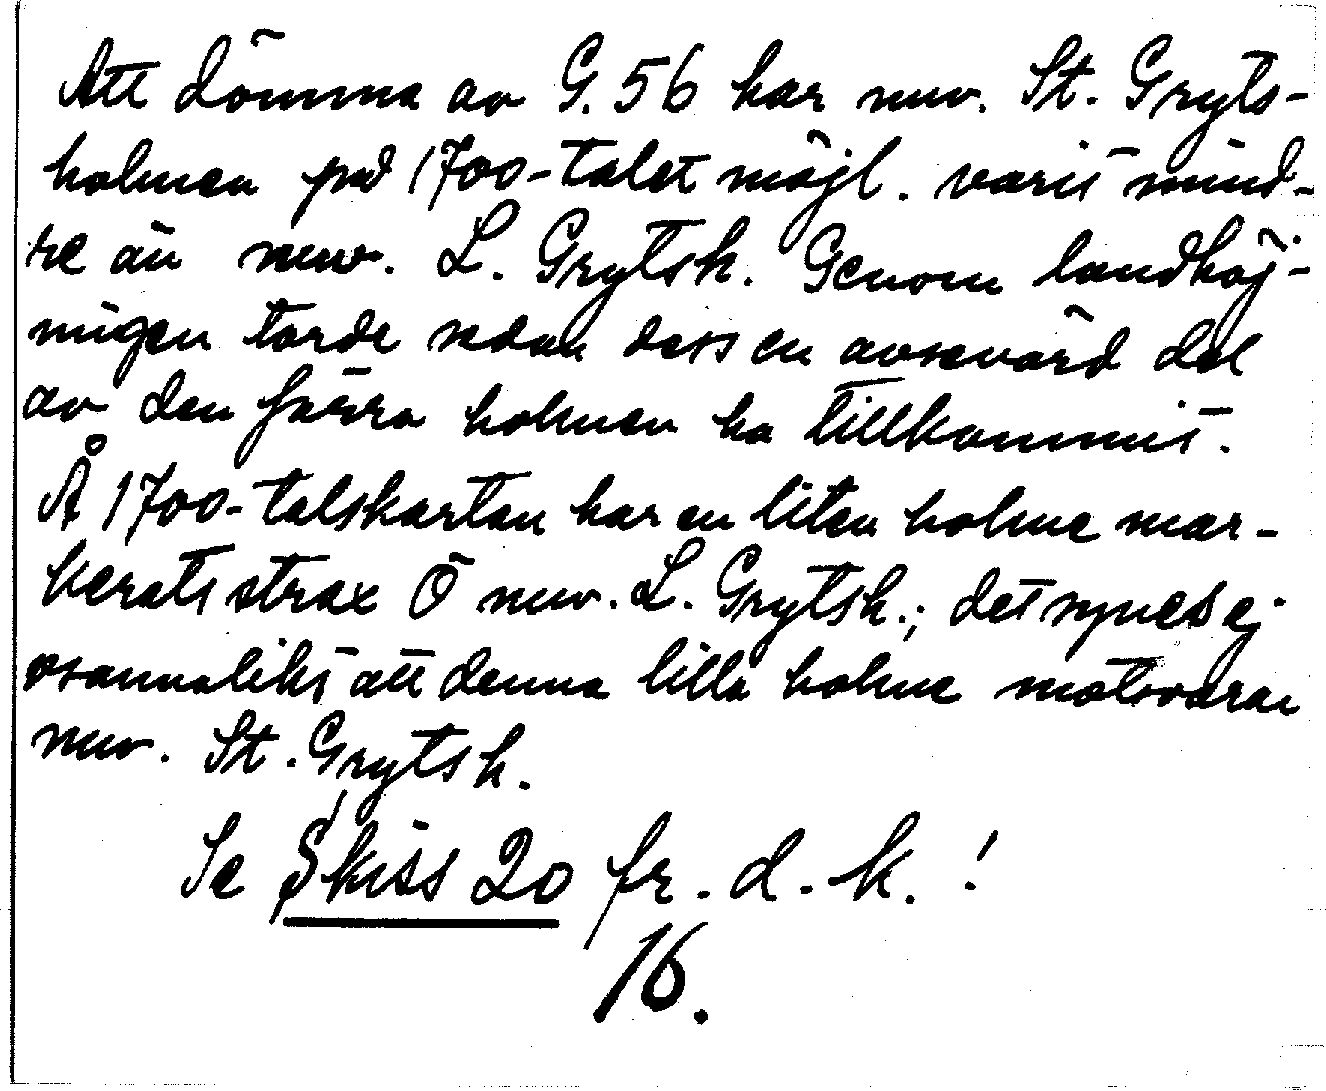 Att dömma av G. 56 har nuv. St. Gryts-
holmen på 1700-talet möjl. varit mind-
re än nuv. L. Grytsh. Genom landhöj-
ningen torde sedan dess en avsevärd del
av den förra holmen ha tillkommit.
Å 1700-talskartan har en liten holme mar-
kerats strax Ö nuv. L. Grytsh.; det synes ej
osannolikt att denna lilla holme motsvarar
nuv. St. Grytsh.
Se Skiss 20 fr. d. k. !
16.